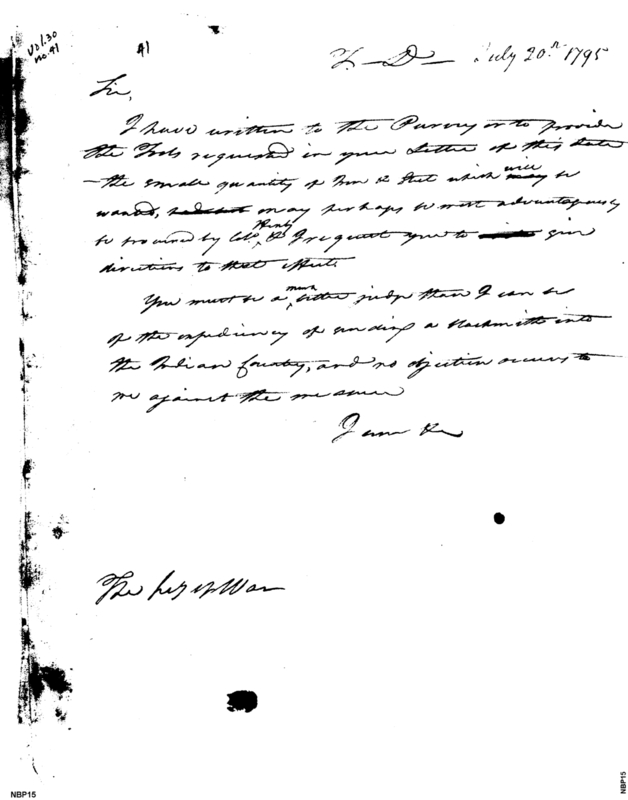 Vol. 30
no. 41
41
T. — D — July 20th 1795
Sir,
I have written to the Purveyor to provide
the Tools requested in your Letter of this date
— the small quantity of Iron & Steel which will be
wanted, may perhaps be most advantageously
be procured by Colo. Henly, & I request you to give
directions to that effect.
You must be a much better judge than I can be
of the expediency of sending a blacksmith into
the Indian Country, and no objection occurs to
me against the measure
I am &c
The Secy of War
NBP15
NBP15